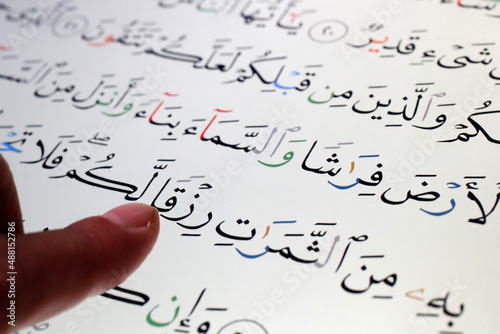 شَىْءٍ قَدِيرٌ ٢٠ يَـٰٓأَيُّهَا
كُمْ وَٱلَّذِينَ مِن قَبْلِكُمْ لَعَلَّكُمْ تَتَّقُونَ
لْأَرْضَ فِرَٰشًا وَٱلسَّمَآءَ بِنَآءً وَأَنزَلَ مِنَ
بِهِۦ مِنَ ٱلثَّمَرَٰتِ رِزْقًا لَّكُمْ فَلَا
وَإِن
Adobe Stock | #488152786